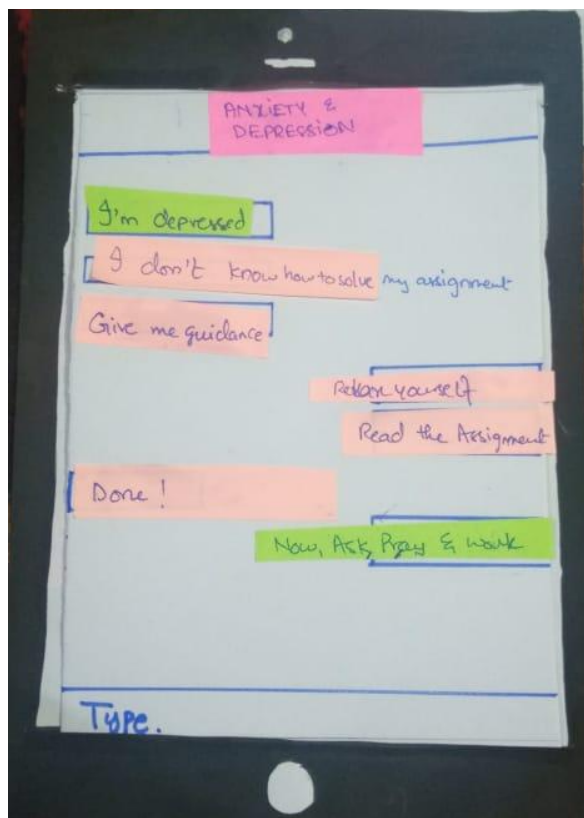 ANXIETY &
DEPRESSION
I'm depressed
I don't know how to solve my assignment
Give me guidance
yourself
Read the Assignment
Done!
Now, Ask, Pray & work
Type.